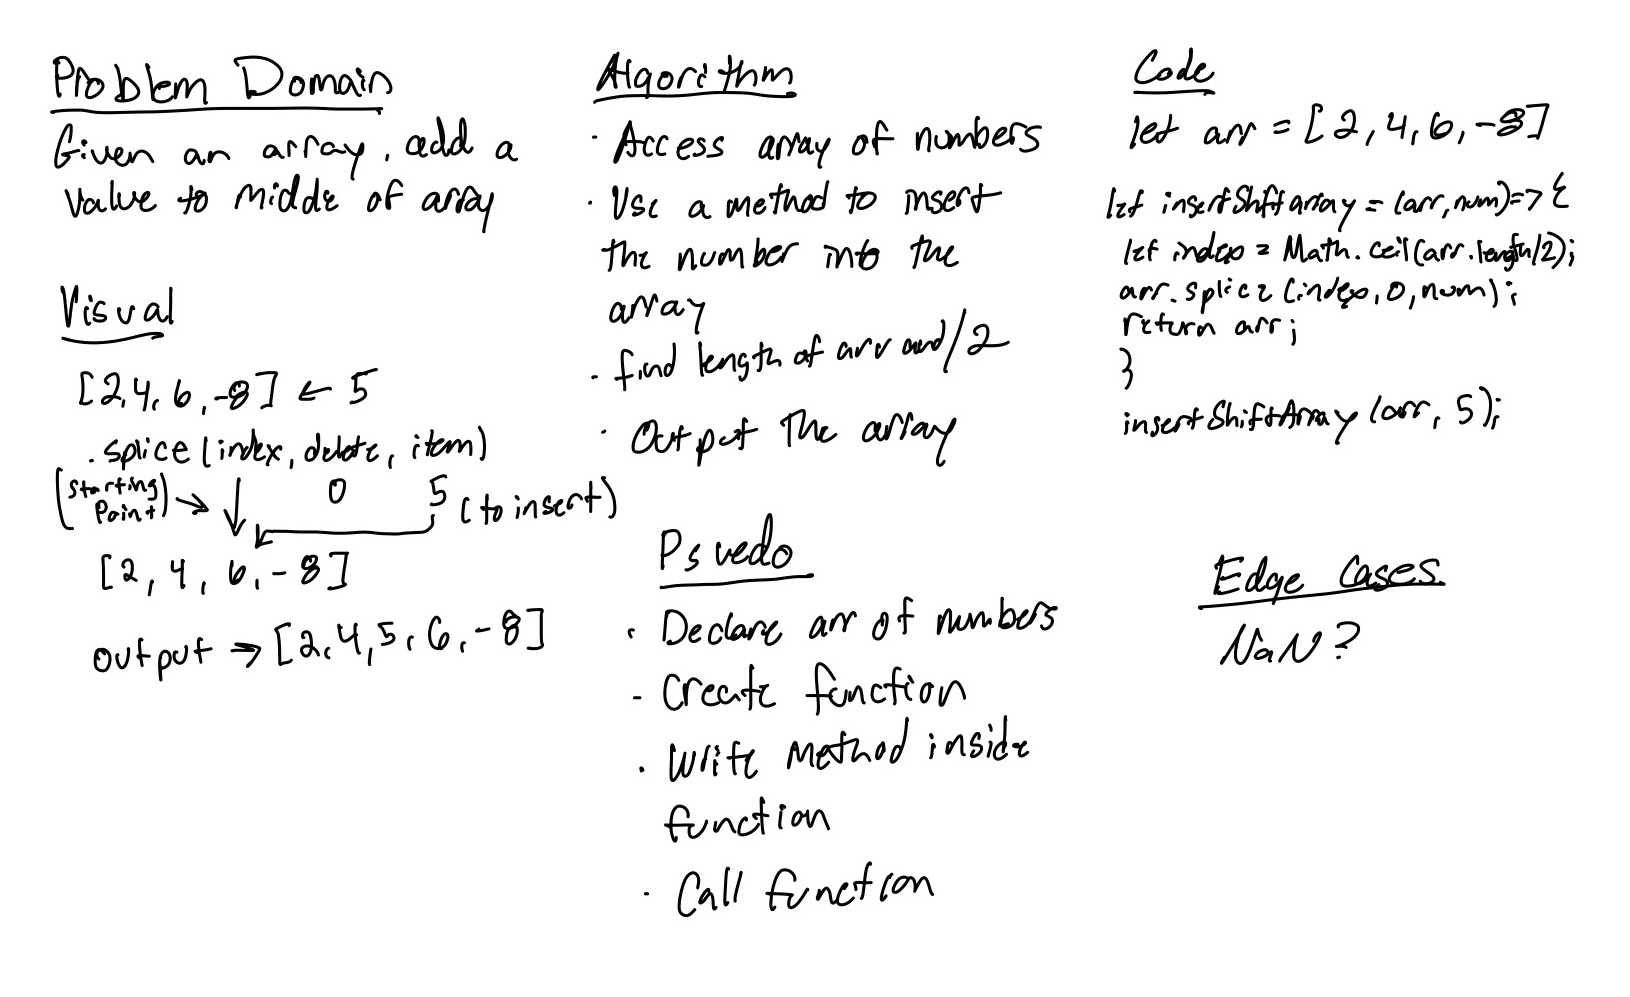 Problem Domain
Given an array, add a
value to middle of array
Visual
[2,4, 6, -8] ← 5
.splice (index, delete, item)
(starting Point) → ↓ 0 5 (to insert)
[2, 4, 6, -8]
output → [2, 4, 5, 6, -8]
Algorithm
· Access array of numbers
· Use a method to insert
the number into the
array
· find length of arr and /2
· Output The array
Psuedo
· Declare arr of numbers
- Create function
· Write Method inside
function
· Call function
Code
let arr = [2, 4, 6, -8]
let insertShiftarray = (arr, num) => {
let index = Math.ceil(arr.length/2);
arr.splice (index, 0, num);
return arr;
}
insertShiftArray (arr, 5);
Edge Cases
NaN?